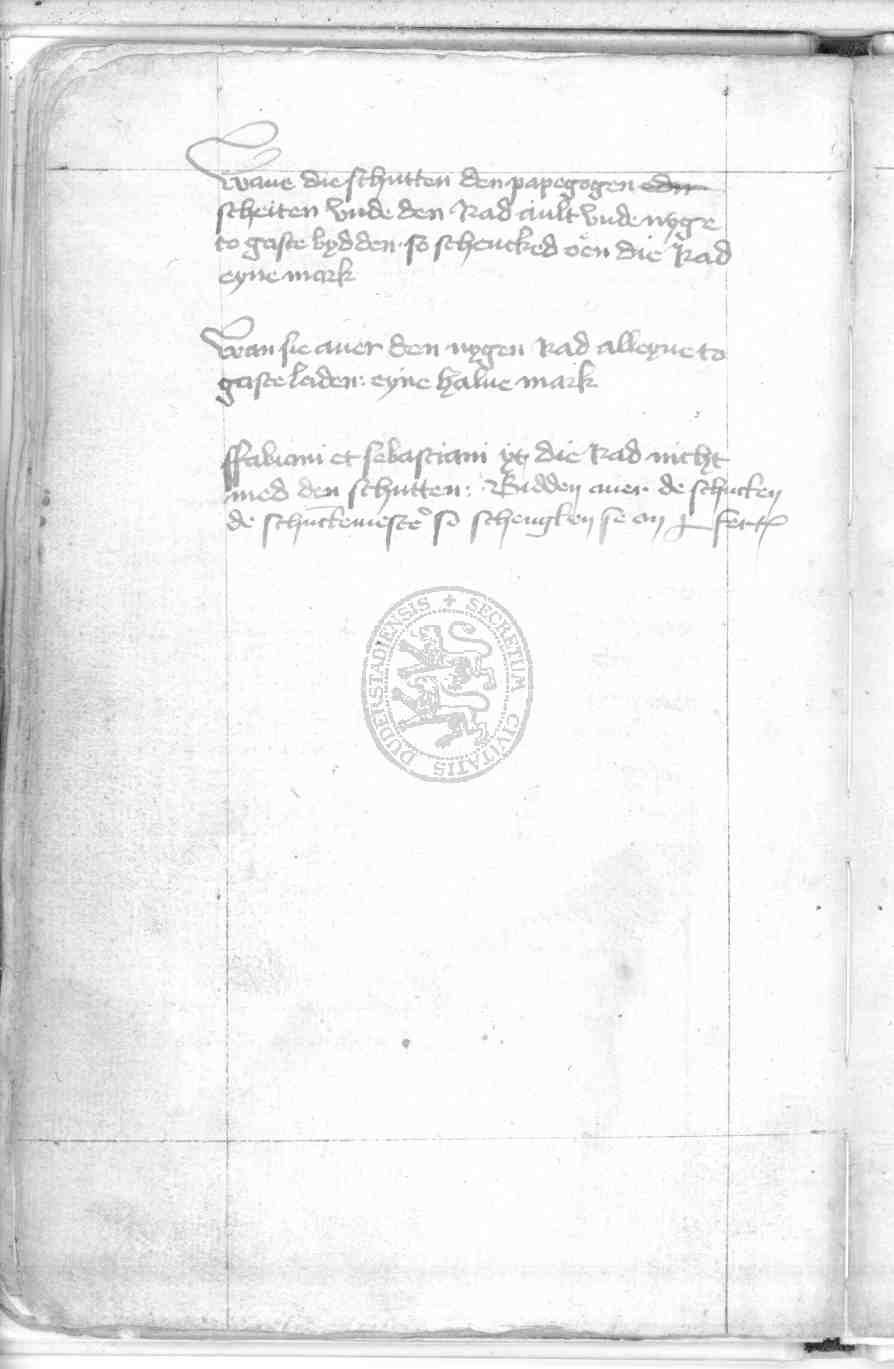 Wane die schutten den papegogen
scheiten vnde den Rad ault vnde nyge
to gaste bydden · so schencked oen die Rad
eyne mark
Wan sie auer den nygen Rad alleyne to
gaste laden : eyne halue mark
ffabiani et sebastiani die Rad nicht
med den schutten : Bidden auer de schutten
de so schengken se on
DUDERSTADIENSIS + SECRETUM CIVITATIS